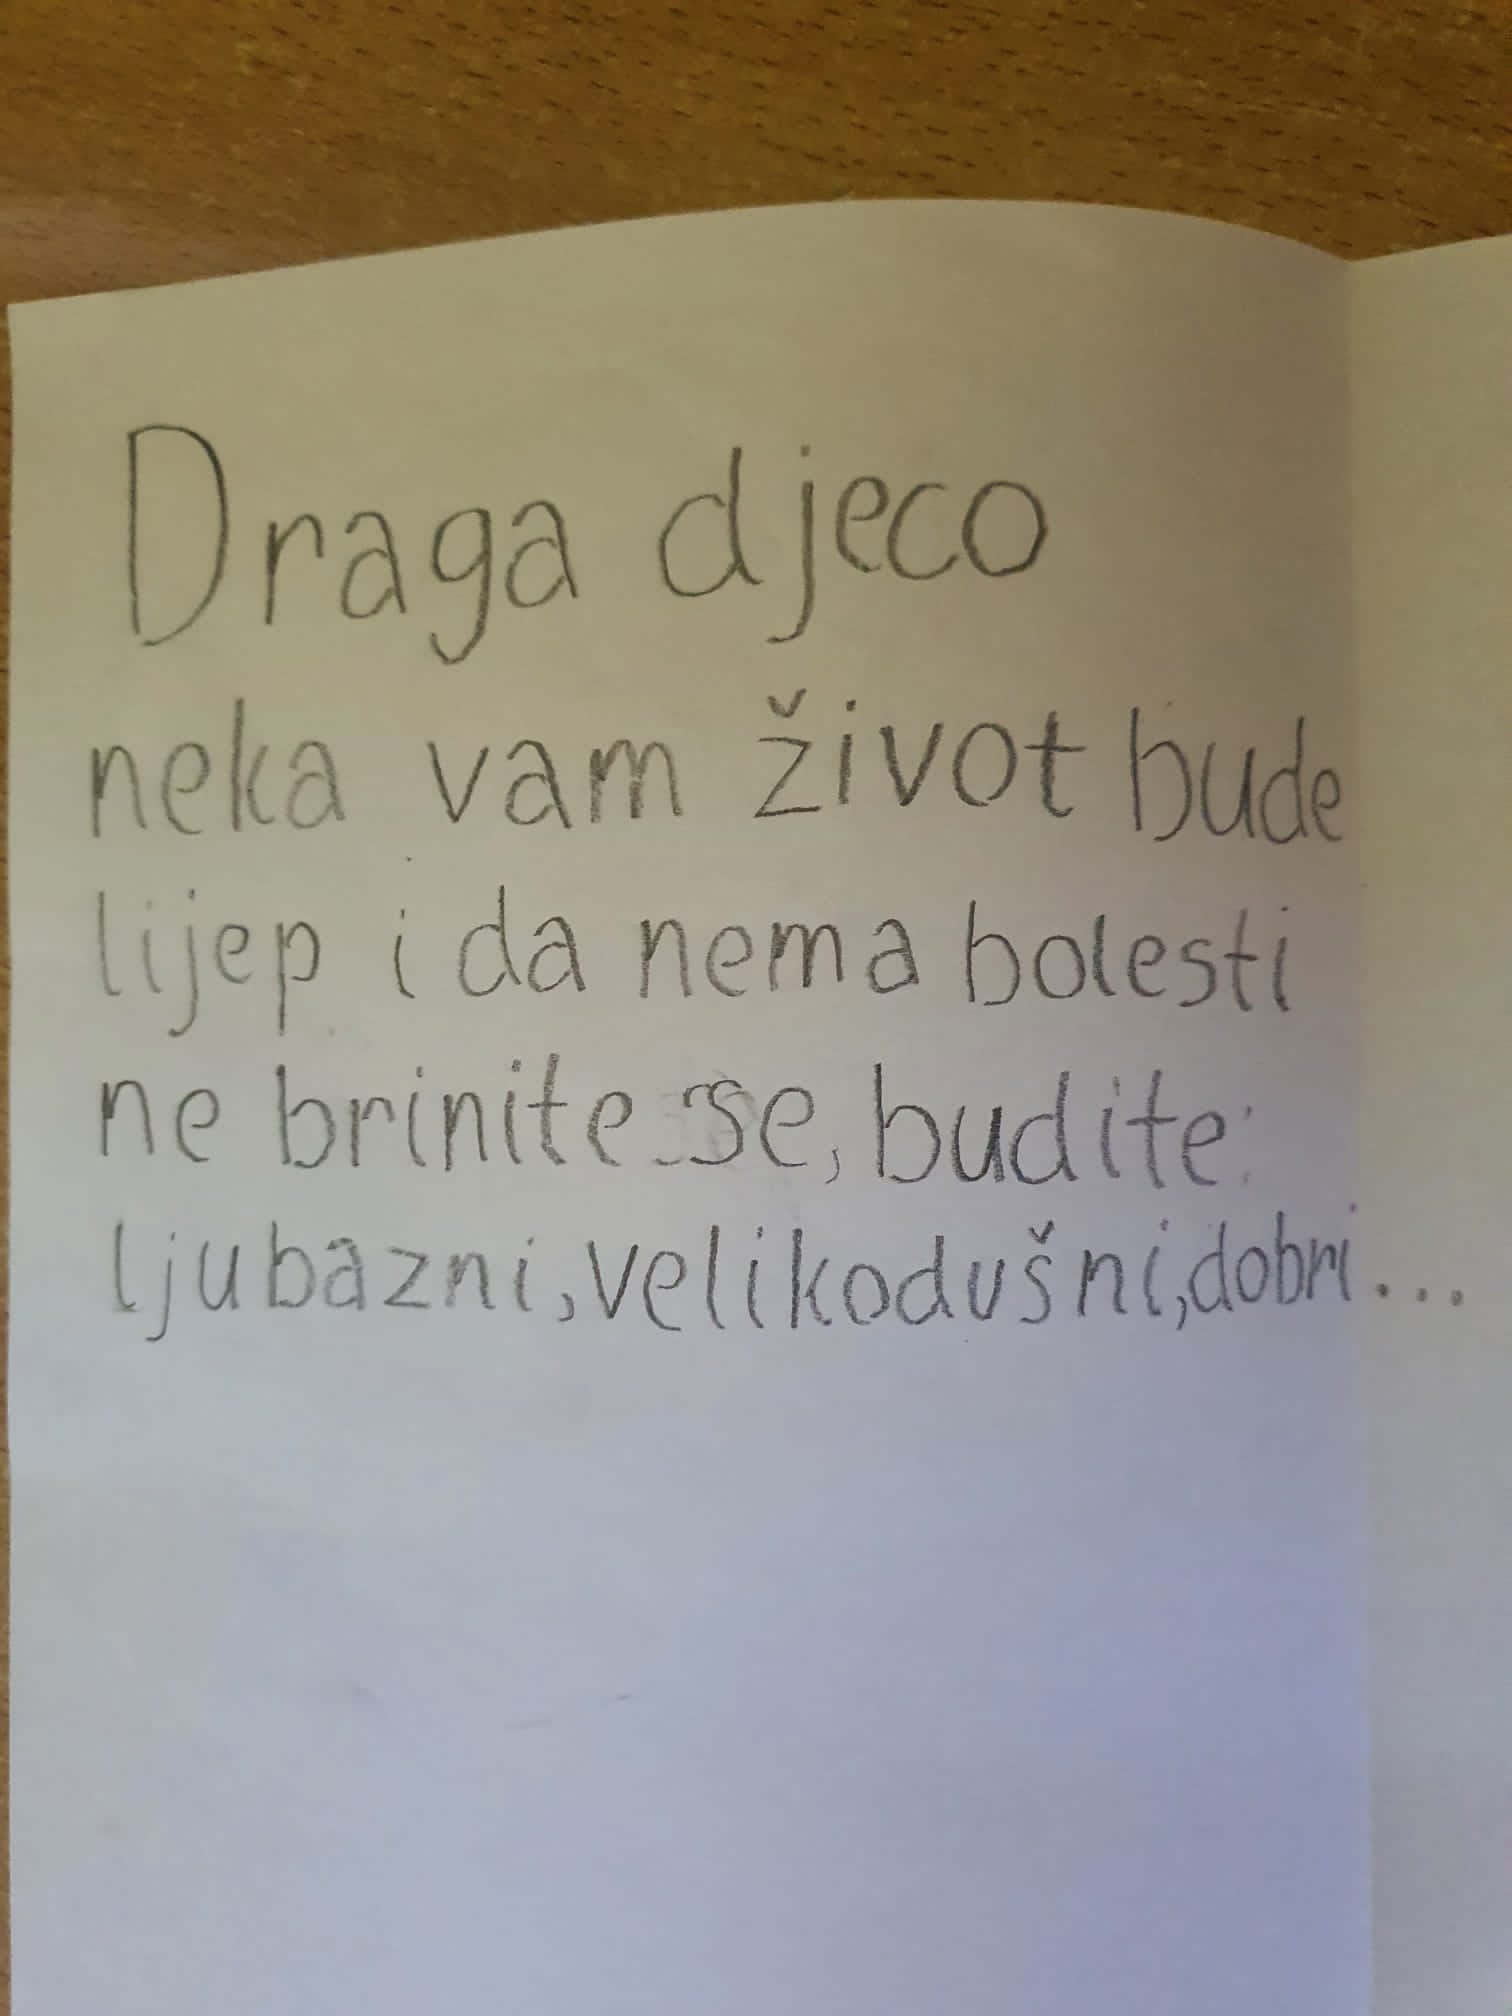 Draga djeco
neka vam život bude
lijep i da nema bolesti
ne brinite se, budite:
ljubazni, velikodušni, dobri...